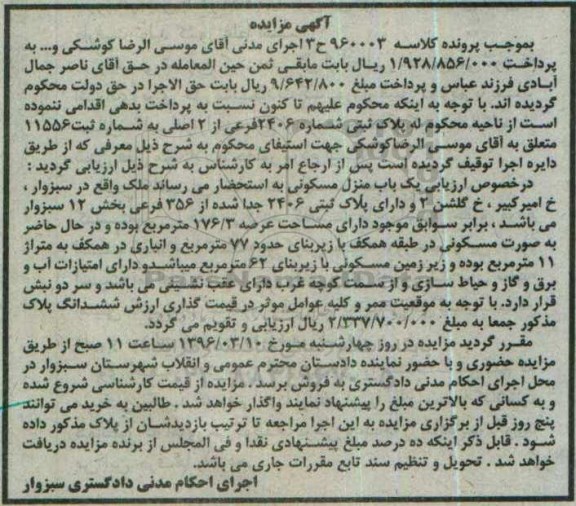 آگهی مزایده
بموجب پرونده کلاسه ۹۶۰۰۰۳ ح۳ اجرای مدنی آقای موسی الرضا کوشکی و... به
پرداخت ۱/۹۲۸/۸۵۶/۰۰۰ ریال بابت مابقی ثمن حین المعامله در حق آقای ناصر جمال
آبادی فرزند عباس و پرداخت مبلغ ۹/۶۴۲/۸۰۰ ریال بابت حق الاجرا در حق دولت محکوم
گردیده اند. با توجه به اینکه محکوم علیهم تا کنون نسبت به پرداخت بدهی اقدامی ننموده
است از ناحیه محکوم له پلاک ثبتی شماره ۲۴۰۶فرعی از ۲ اصلی به شماره ثبت۱۱۵۵۶
متعلق به آقای موسی الرضاکوشکی جهت استیفای محکوم به شرح ذیل معرفی که از طریق
دایره اجرا توقیف گردیده است پس از ارجاع امر به کارشناس به شرح ذیل ارزیابی گردید :
درخصوص ارزیابی یک باب منزل مسکونی به استحضار می رساند ملک واقع در سبزوار ،
خ امیرکبیر ، خ گلشن ۲ و دارای پلاک ثبتی ۲۴۰۶ جدا شده از ۳۵۶ فرعی بخش ۱۲ سبزوار
می باشد ، برابر سوابق موجود دارای مساحت عرصه ۱۷۶/۳ مترمربع بوده و در حال حاضر
به صورت مسکونی در طبقه همکف با زیربنای حدود ۷۷ مترمربع و انباری در همکف به متراژ
۱۱ مترمربع بوده و زیر زمین مسکونی با زیربنای ۶۲ مترمربع میباشدو دارای امتیازات آب و
برق و گاز و حیاط سازی و از سمت کوچه غرب دارای عقب نشینی می باشد و سر دو نبش
قرار دارد. با توجه به موقعیت ممر و کلیه عوامل موثر در قیمت گذاری ارزش ششدانگ پلاک
مذکور جمعا به مبلغ ۲/۳۳۷/۷۰۰/۰۰۰ ریال ارزیابی و تقویم می گردد.
مقرر گردید مزایده در روز چهارشنبه مورخ ۱۳۹۶/۰۳/۱۰ ساعت ۱۱ صبح از طریق
مزایده حضوری و با حضور نماینده دادستان محترم عمومی و انقلاب شهرستان سبزوار در
محل اجرای احکام مدنی دادگستری به فروش برسد . مزایده از قیمت کارشناسی شروع شده
و به کسانی که بالاترین مبلغ را پیشنهاد نمایند واگذار خواهد شد . طالبین به خرید می توانند
پنج روز قبل از برگزاری مزایده به این اجرا مراجعه تا ترتیب بازدیدشان از پلاک مذکور داده
شود . قابل ذکر اینکه ده درصد مبلغ پیشنهادی نقدا و فی المجلس از برنده مزایده دریافت
خواهد شد . تحویل و تنظیم سند تابع مقررات جاری می باشد.
اجرای احکام مدنی دادگستری سبزوار